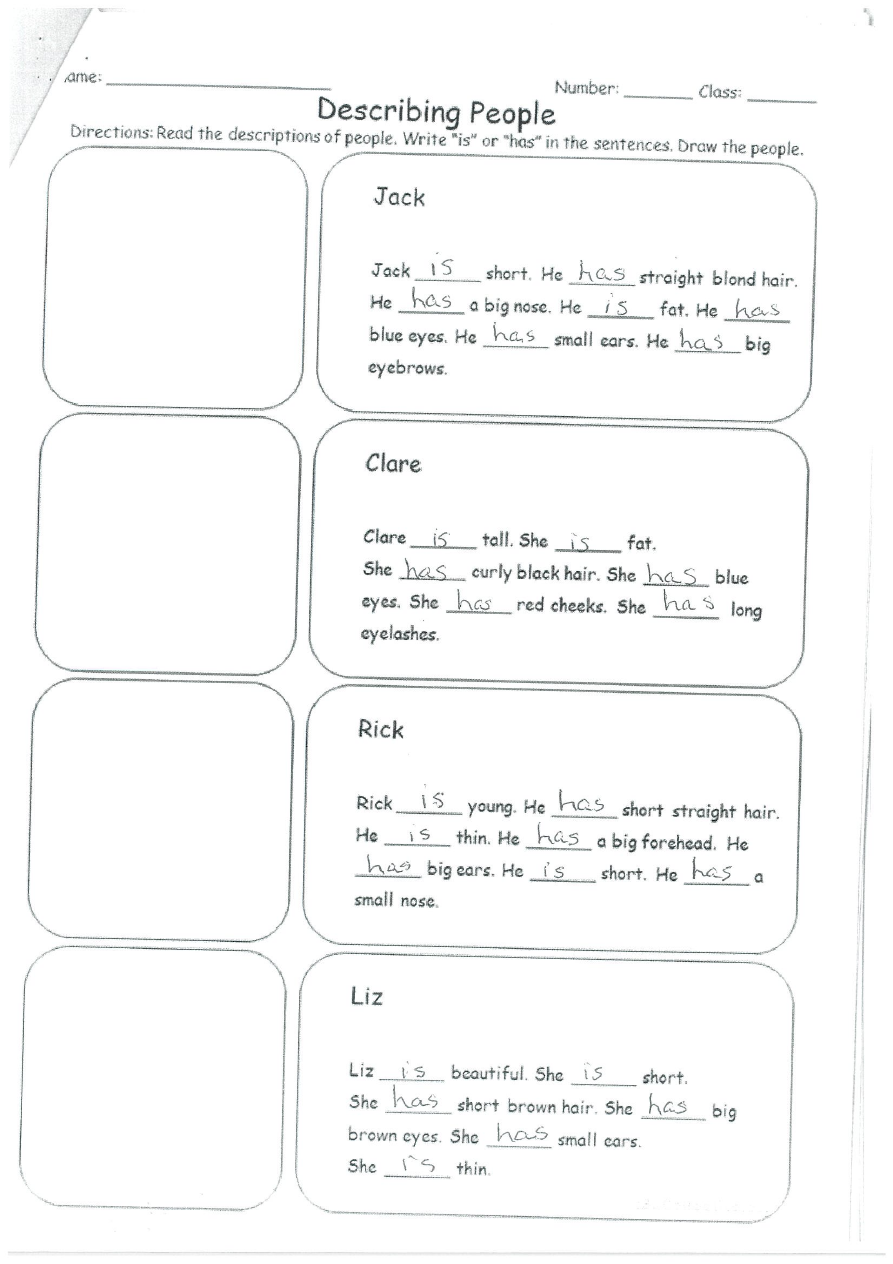 ame: ____________ Number: ______ Class: ______
Describing People
Directions: Read the descriptions of people. Write "is" or "has" in the sentences. Draw the people.
Jack
Jack is short. He has straight blond hair.
He has a big nose. He is fat. He has
blue eyes. He has small ears. He has big
eyebrows.
Clare
Clare is tall. She is fat.
She has curly black hair. She has blue
eyes. She has red cheeks. She has long
eyelashes.
Rick
Rick is young. He has short straight hair.
He is thin. He has a big forehead. He
has big ears. He is short. He has a
small nose.
Liz
Liz is beautiful. She is short.
She has short brown hair. She has big
brown eyes. She has small ears.
She is thin.